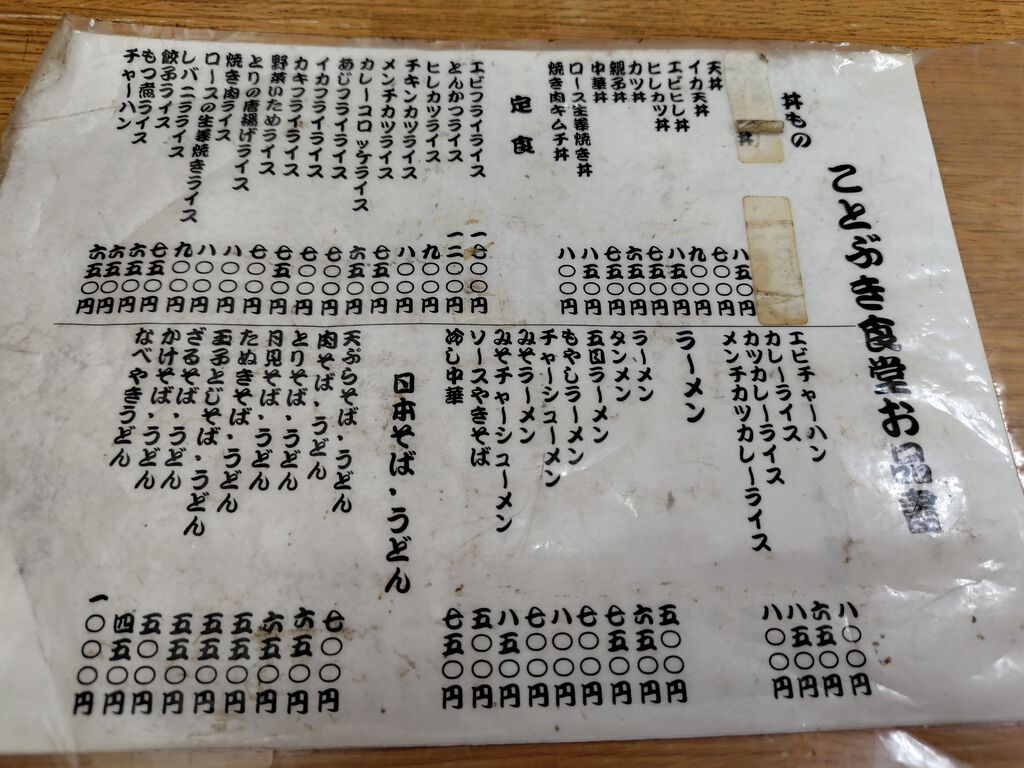 ことぶき食堂お品書
丼もの
丼
天丼 八五〇円
イカ天丼 七〇〇円
エビヒレ丼 九〇〇円
ヒレカツ丼 八五〇円
カツ丼 七五〇円
親子丼 六五〇円
中華丼 七五〇円
ロース生姜焼き丼 八五〇円
焼き肉キムチ丼 八〇〇円
定食
エビフライライス 一七〇〇円
とんかつライス 一二〇〇円
ヒレカツライス 九〇〇円
チキンカツライス 八〇〇円
メンチカツライス 七五〇円
カレーコロッケライス 六五〇円
あじフライライス 七〇〇円
イカフライライス 七〇〇円
カキフライライス 七五〇円
野菜いためライス 七〇〇円
とりの唐揚げライス 八〇〇円
焼き肉ライス 八〇〇円
ロースの生姜焼きライス 九〇〇円
レバニラライス 七五〇円
餃子ライス 六五〇円
もつ煮ライス 六五〇円
チャーハン 六五〇円
エビチャーハン 八〇〇円
カレーライス 六五〇円
カツカレーライス 八五〇円
メンチカツカレーライス 八〇〇円
ラーメン
ラーメン 五〇〇円
タンメン 六五〇円
五目ラーメン 七五〇円
もやしラーメン 七〇〇円
チャーシューメン 八〇〇円
みそラーメン 七〇〇円
みそチャーシューメン 八五〇円
ソースやきそば 五〇〇円
冷し中華 七五〇円
日本そば・うどん
天ぷらそば・うどん 七〇〇円
肉そば・うどん 六五〇円
とりそば・うどん 六五〇円
月見そば・うどん 五五〇円
たぬきそば・うどん 五五〇円
玉子とじそば・うどん 五五〇円
ざるそば・うどん 五〇〇円
かけそば・うどん 四五〇円
なべやきうどん 一〇〇〇円